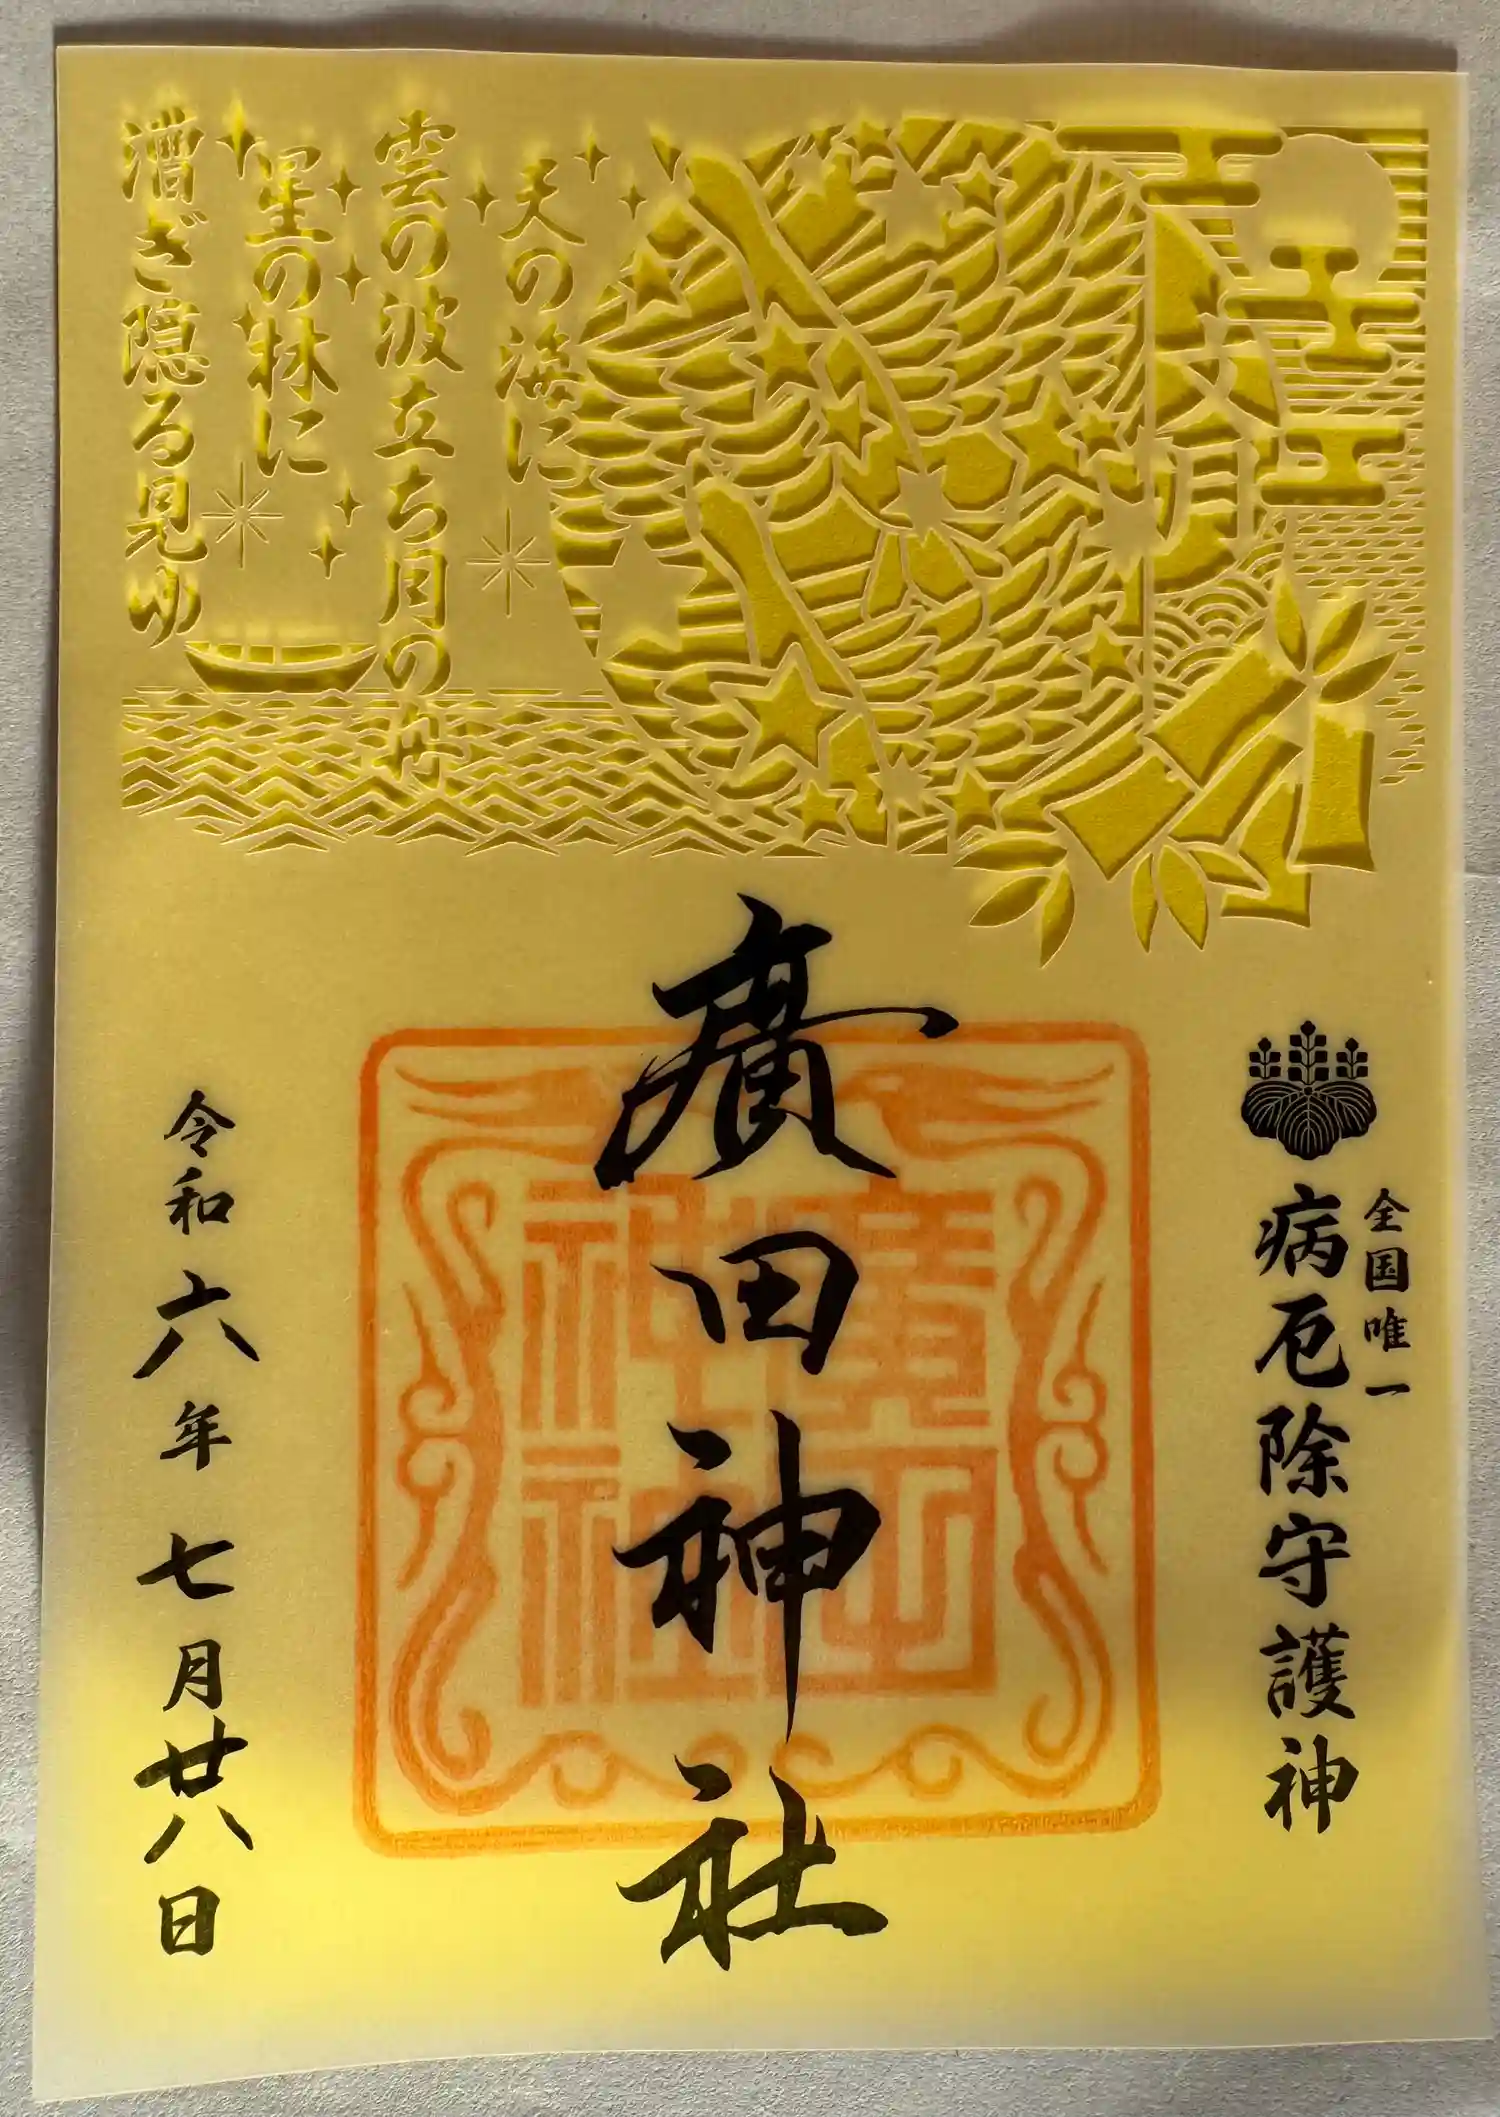 天の海に
雲の波立ち月の舟
星の林に
漕ぎ隠る見ゆ
文月
全国唯一
病厄除守護神
廣田神社
廣田神社
令和六年七月廿八日